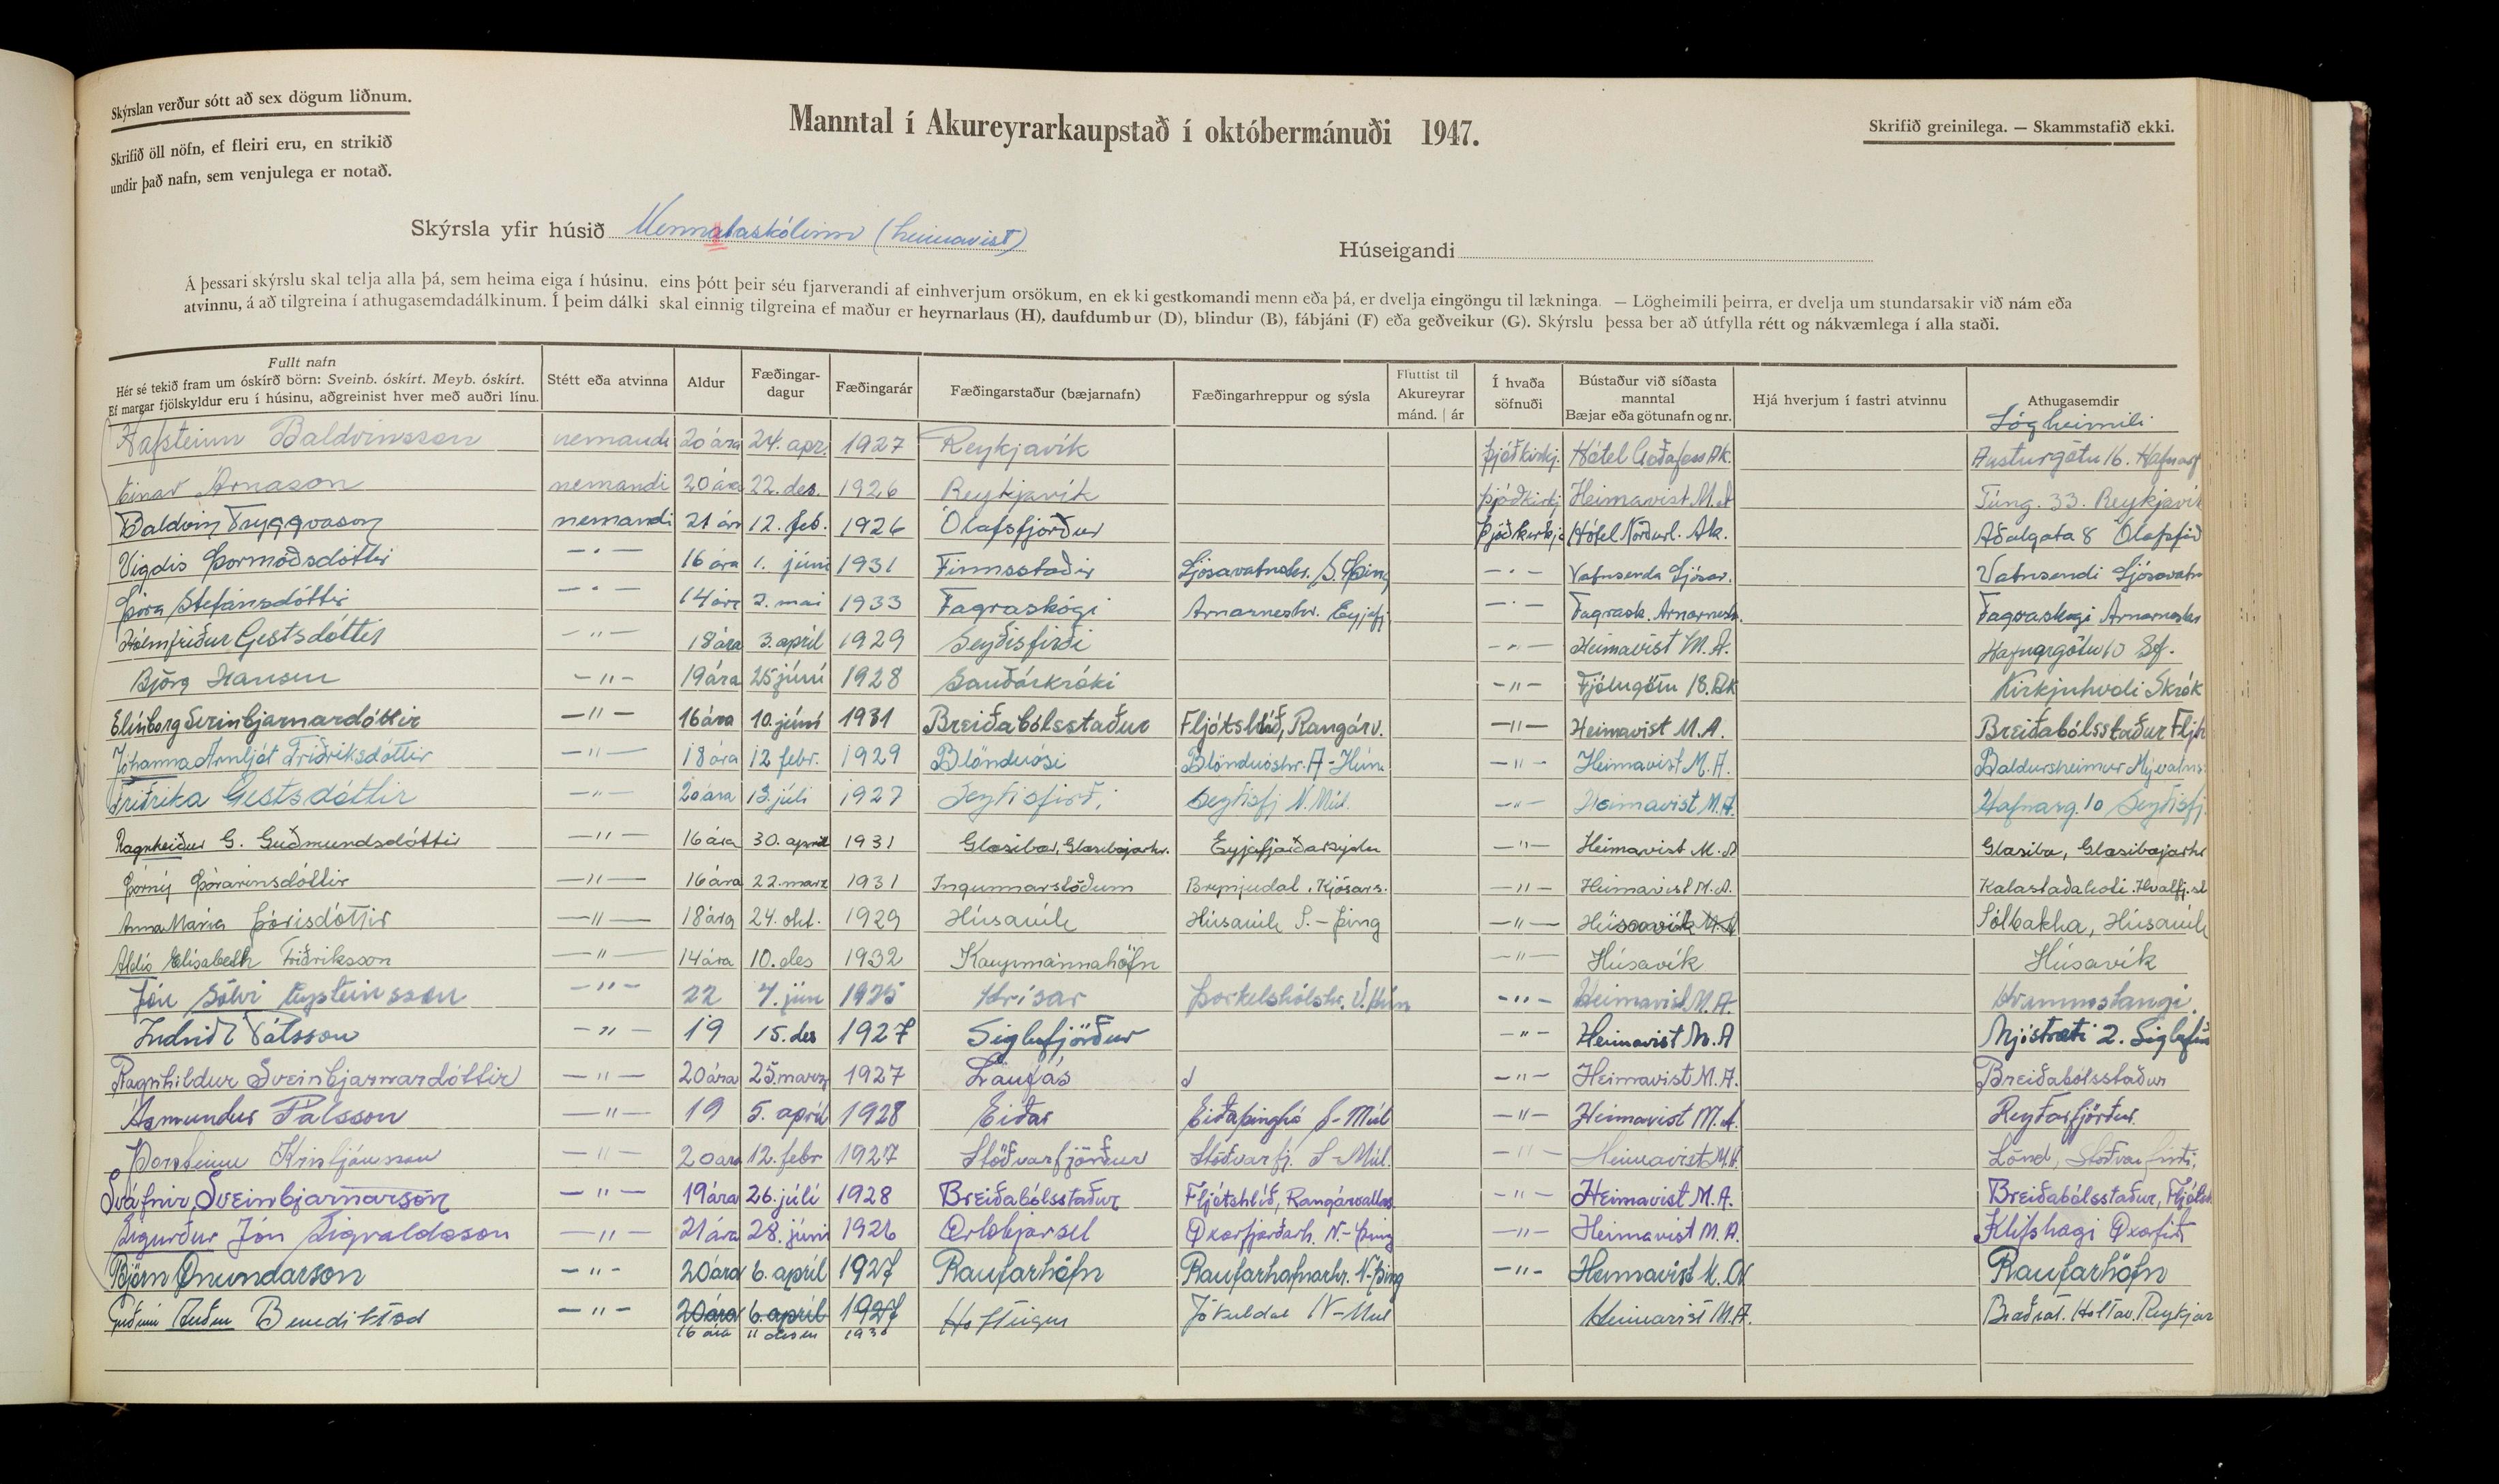 Skýrslan verður sótt að sex dögum liðnum.
Skrifið öll nöfn, ef fleiri eru, en strikið
undir það nafn, sem venjulega er notað.
Manntal í Akureyrarkaupstað í októbermánuði 1947.
Skrifið greinilega. — Skammstafið ekki.
Skýrsla yfir húsið Mennataskólinn (heimavist)
Húseigandi
Á þessari skýrslu skal telja alla þá, sem heima eiga í húsinu, eins þótt þeir séu fjarverandi af einhverjum orsökum, en ekki gestkomandi menn eða þá, er dvelja eingöngu til lækninga. — Lögheimili þeirra, er dvelja um stundarsakir við nám eða
atvinnu, á að tilgreina í athugasemdadálkinum. Í þeim dálki skal einnig tilgreina ef maður er heyrnarlaus (H), daufdumbur (D), blindur (B), fábjáni (F) eða geðveikur (G). Skýrslu þessa ber að útfylla rétt og nákvæmlega í alla staði.
Fullt nafn Hér sé tekið fram um óskírð börn: Sveinb. óskírt. Meyb. óskírt. Ef margar fjölskyldur eru í húsinu, aðgreinist hver með auðri línu. Stétt eða atvinna Aldur Fæðingar-dagur Fæðingarár Fæðingarstaður (bæjarnafn) Fæðingarhreppur og sýsla Fluttist til Akureyrar mánd. | ár Í hvaða söfnuði Bústaður við síðasta manntal Bæjar eða götunafn og nr. Hjá hverjum í fastri atvinnu Athugasemdir Lögheimili
Hafsteinn Baldvinsson nemandi 20 ára 24. apr. 1927 Reykjavík þjóðkirkj. Hótel Goðafoss Ak. Austurgötu 16. Hafnarf
Einar Árnason nemandi 20 ára 22. des. 1926 Reykjavík þjóðkirkj Heimavist M.A Túng. 33. Reykjavík
Baldvin Tryggvason nemandi 21 árs 12. feb. 1926 Ólafsfjörður Þjóðkirkj Hótel Norðurl. Ak. Aðalgata 8 Ólafsfirð
Vigdís Þormóðsdóttir — " — 16 ára 1. júni 1931 Finnsstaðir Ljósavatnshr. S. Þing — " — Vatnsenda Ljósav. Vatnsendi Ljósavatn
Þóra Stefánsdóttir — " — 14 ára 2. mai 1933 Fagraskógi Arnarneshr. Eyjafj — " — Fagrask. Arnarnesh. Fagraskógi Arnarneshr
Hólmfríður Gestsdóttir — " — 18 ára 3. apríl 1929 Seyðisfirði — " — Heimavist M.A. Hafnargötu 10 Sf.
Björg Hansen — " — 19 ára 25 júní 1928 Sauðárkróki — " — Fjólugötu 18. Ak Kirkjuhvoli Skrók
Elínborg Sveinbjarnardóttir — " — 16 ára 10. júní 1931 Breiðabólsstaður Fljótshlíð, Rangárv. — " — Heimavist M.A. Breiðabólsstaður Fljh
Jóhanna Arnljót Friðriksdóttir — " — 18 ára 12 febr. 1929 Blönduósi Blönduóshr. A-Hún — " — Heimavist M.A. Baldursheimur Mývatns
Friðrika Gestsdóttir — " — 20 ára 13. júli 1927 Seyðisfirð. Seyðisfj N. Múl. — " — Heimavist M.A. Hafnarg. 10 Seyðisfj.
Ragnheiður G. Guðmundsdóttir — " — 16 ára 30. apríl 1931 Glæsibæ, Glæsibæjarhr. Eyjafjarðarsýslu — " — Heimavist M.A Glæsibæ, Glæsibæjarhr
Þórný Þórarinsdóttir — " — 16 ára 22. marz 1931 Ingunnarstöðum Brynjudal. Kjósars. — " — Heimavist M.A. Kalastaðakoti. Hvalfj.st
Anna María Þórisdóttir — " — 18 ára 24. okt. 1929 Húsavík Húsavík S.-Þing — " — Húsavík M.A Sólbakka, Húsavík
Aldís Elísabeth Friðriksson — " — 14 ára 10. des 1932 Kaupmannahöfn — " — Húsavík Húsavík
Jón Sölvi Eysteinsson — " — 22 7. jún 1925 Hrísar Þorkelshólshr. V. Hún — " — Heimavist M.A. Hvammstangi.
Indriði Pálsson — " — 19 15. des 1927 Siglufjörður — " — Heimavist M.A Mjóstræti 2. Siglufirð
Ragnhildur Sveinbjarnardóttir — " — 20 ára 25. marz 1927 Laufás — " — Heimavist M.A. Breiðabólsstaður
Ásmundur Pálsson — " — 19 5. apríl 1928 Eiðar Eiðaþinghá S-Múl — " — Heimavist M.A. Reyðarfjörður.
Þorsteinn Kristjánsson — " — 20 ára 12. febr 1927 Stöðvarfjörður Stöðvarfj. S-Múl. — " — Heimavist M.A. Lönd, Stöðvarfirði.
Sváfnir Sveinbjarnarson — " — 19 ára 26. júlí 1928 Breiðabólsstaður Fljótshlíð, Rangárvallas — " — Heimavist M.A. Breiðabólsstaður, Fljótsh
Sigurður Jón Sigvaldason — " — 21 ára 28. júni 1926 Öxarfjarðarh. N.-Þing — " — Heimavist M.A. Klifshagi Öxarfirð
Björn Önundarson — " — 20 ára 6. apríl 1927 Raufarhöfn Raufarhafnarhr. N-Þing — " — Heimavist M.A Raufarhöfn
Benediktsd — " — 20 ára 6. apríl 1927 Hofteigur Jökuldal N-Múl Heimavist M.A. Holtav. Reykjav
16 ára 11 desem